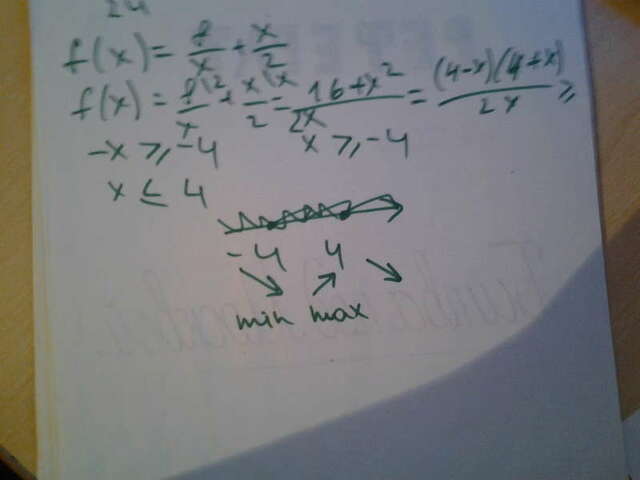 24
f(x) = 8/x + x/2
f(x) = 8\2/x + x\x/2 = 16+x²/2x = (4-x)(4+x)/2x ≥
-x ≥ -4 x ≥ -4
x ≤ 4
-4 4
↘ ↗ ↘
min max